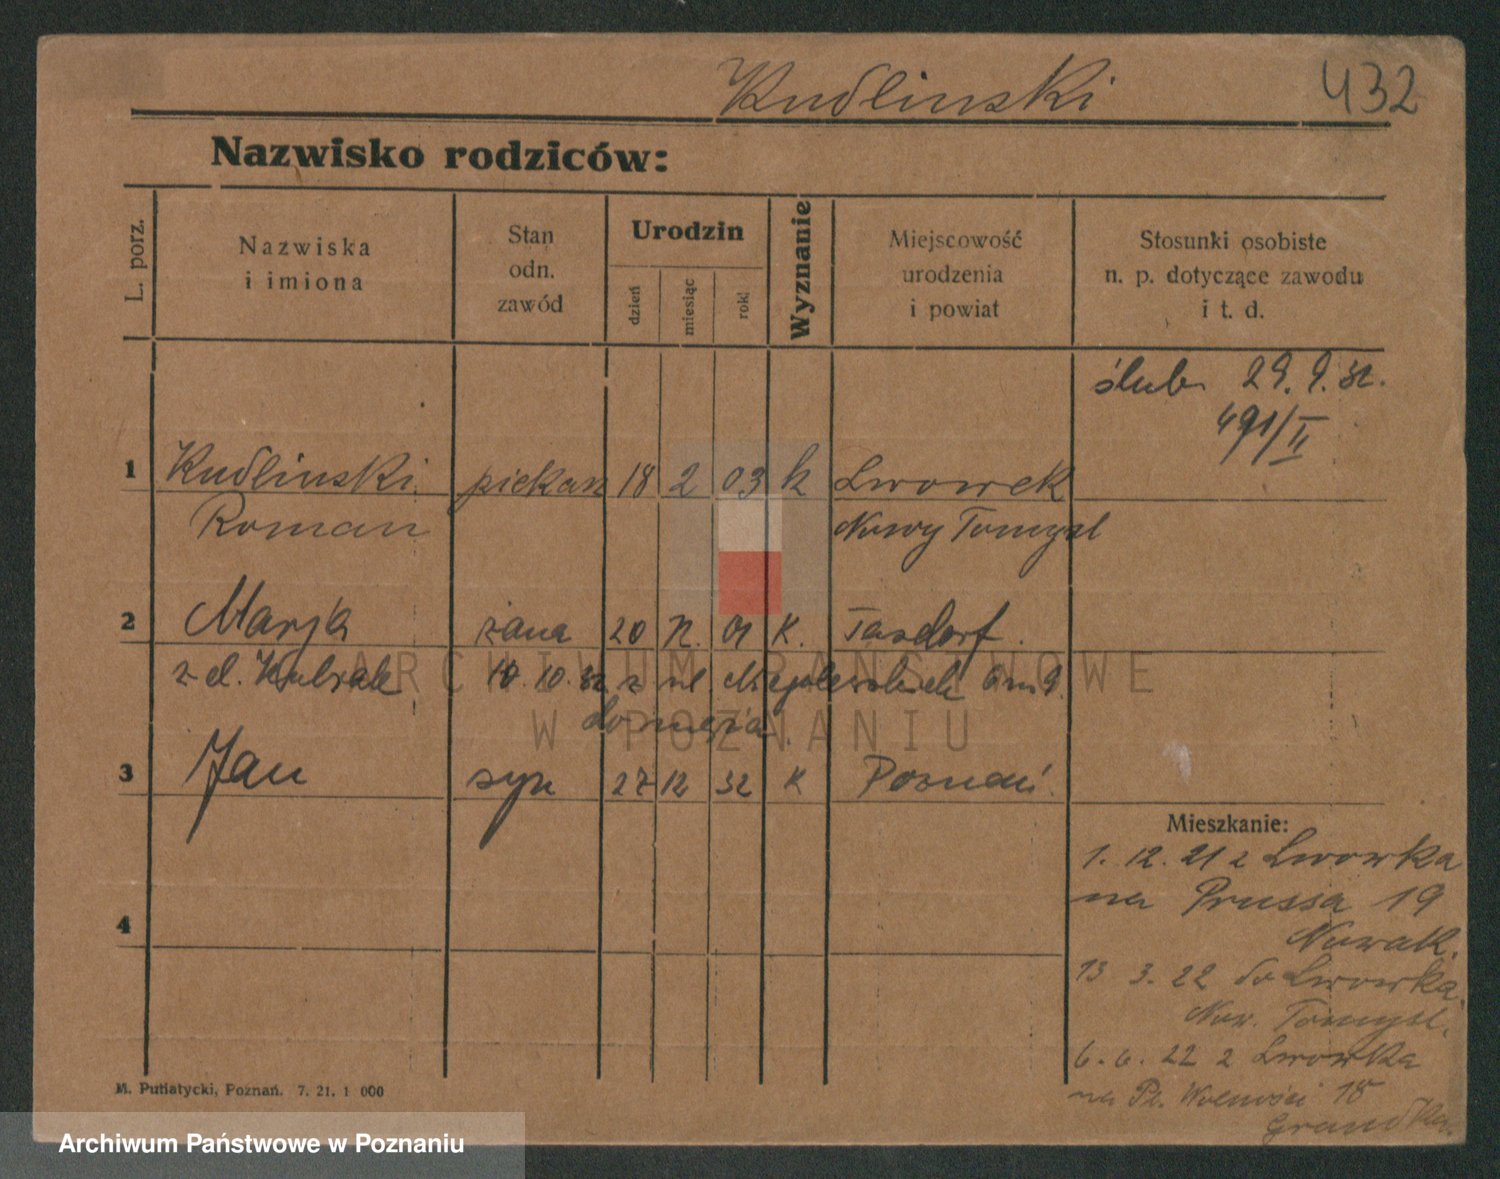 Kudlinski 432
Nazwisko rodziców:
L. porz.
Nazwiska
i imiona
Stan
odn.
zawód
Urodzin
dzień
miesiąc
rok
Wyznanie
Miejscowość
urodzenia
i powiat
Stosunki osobiste
n. p. dotyczące zawodu
i t. d.
ślub 29. 9. 32.
491/II
1 Kudlinski piekarz 18 2 03 k Lwowek
Roman Nowy Tomysl
2 Marja żona 20 01 K.
z d. Kubiak 10. 10. 32 z ul. 9.
do męża.
3 Jan syn 27 12 32 K Poznań.
Mieszkanie:
1. 12. 21 z Lwowka
na Prussa 19
Nowak.
13 3. 22 do Lwowka,
Now. Tomysl.
4
6. 6. 22 z Lwowka
na Pl. Wolności 18
M. Putiatycki, Poznań. 7. 21. 1 000
ARCHIWUM PAŃSTWOWE
W POZNANIU
Archiwum Państwowe w Poznaniu